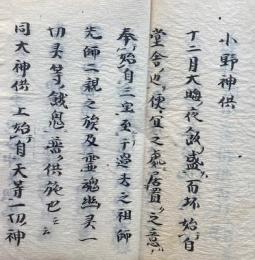 小野神供
十二月大晦夜人飯盛而坏始自
堂舎辺便宜之處居置之意
奉始自三宝至于過去之祖師
先師二親之族及霊魂幽灵一
切灵等餓鬼悉供施也云云
同大神供上始自天等一切神